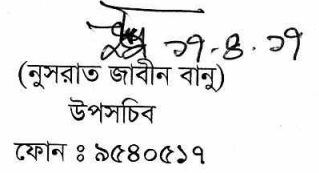 ১৭.৪.১৭
(নুসরাত জাবীন বানু)
উপসচিব
ফোন ঃ ৯৫৪০৫১৭